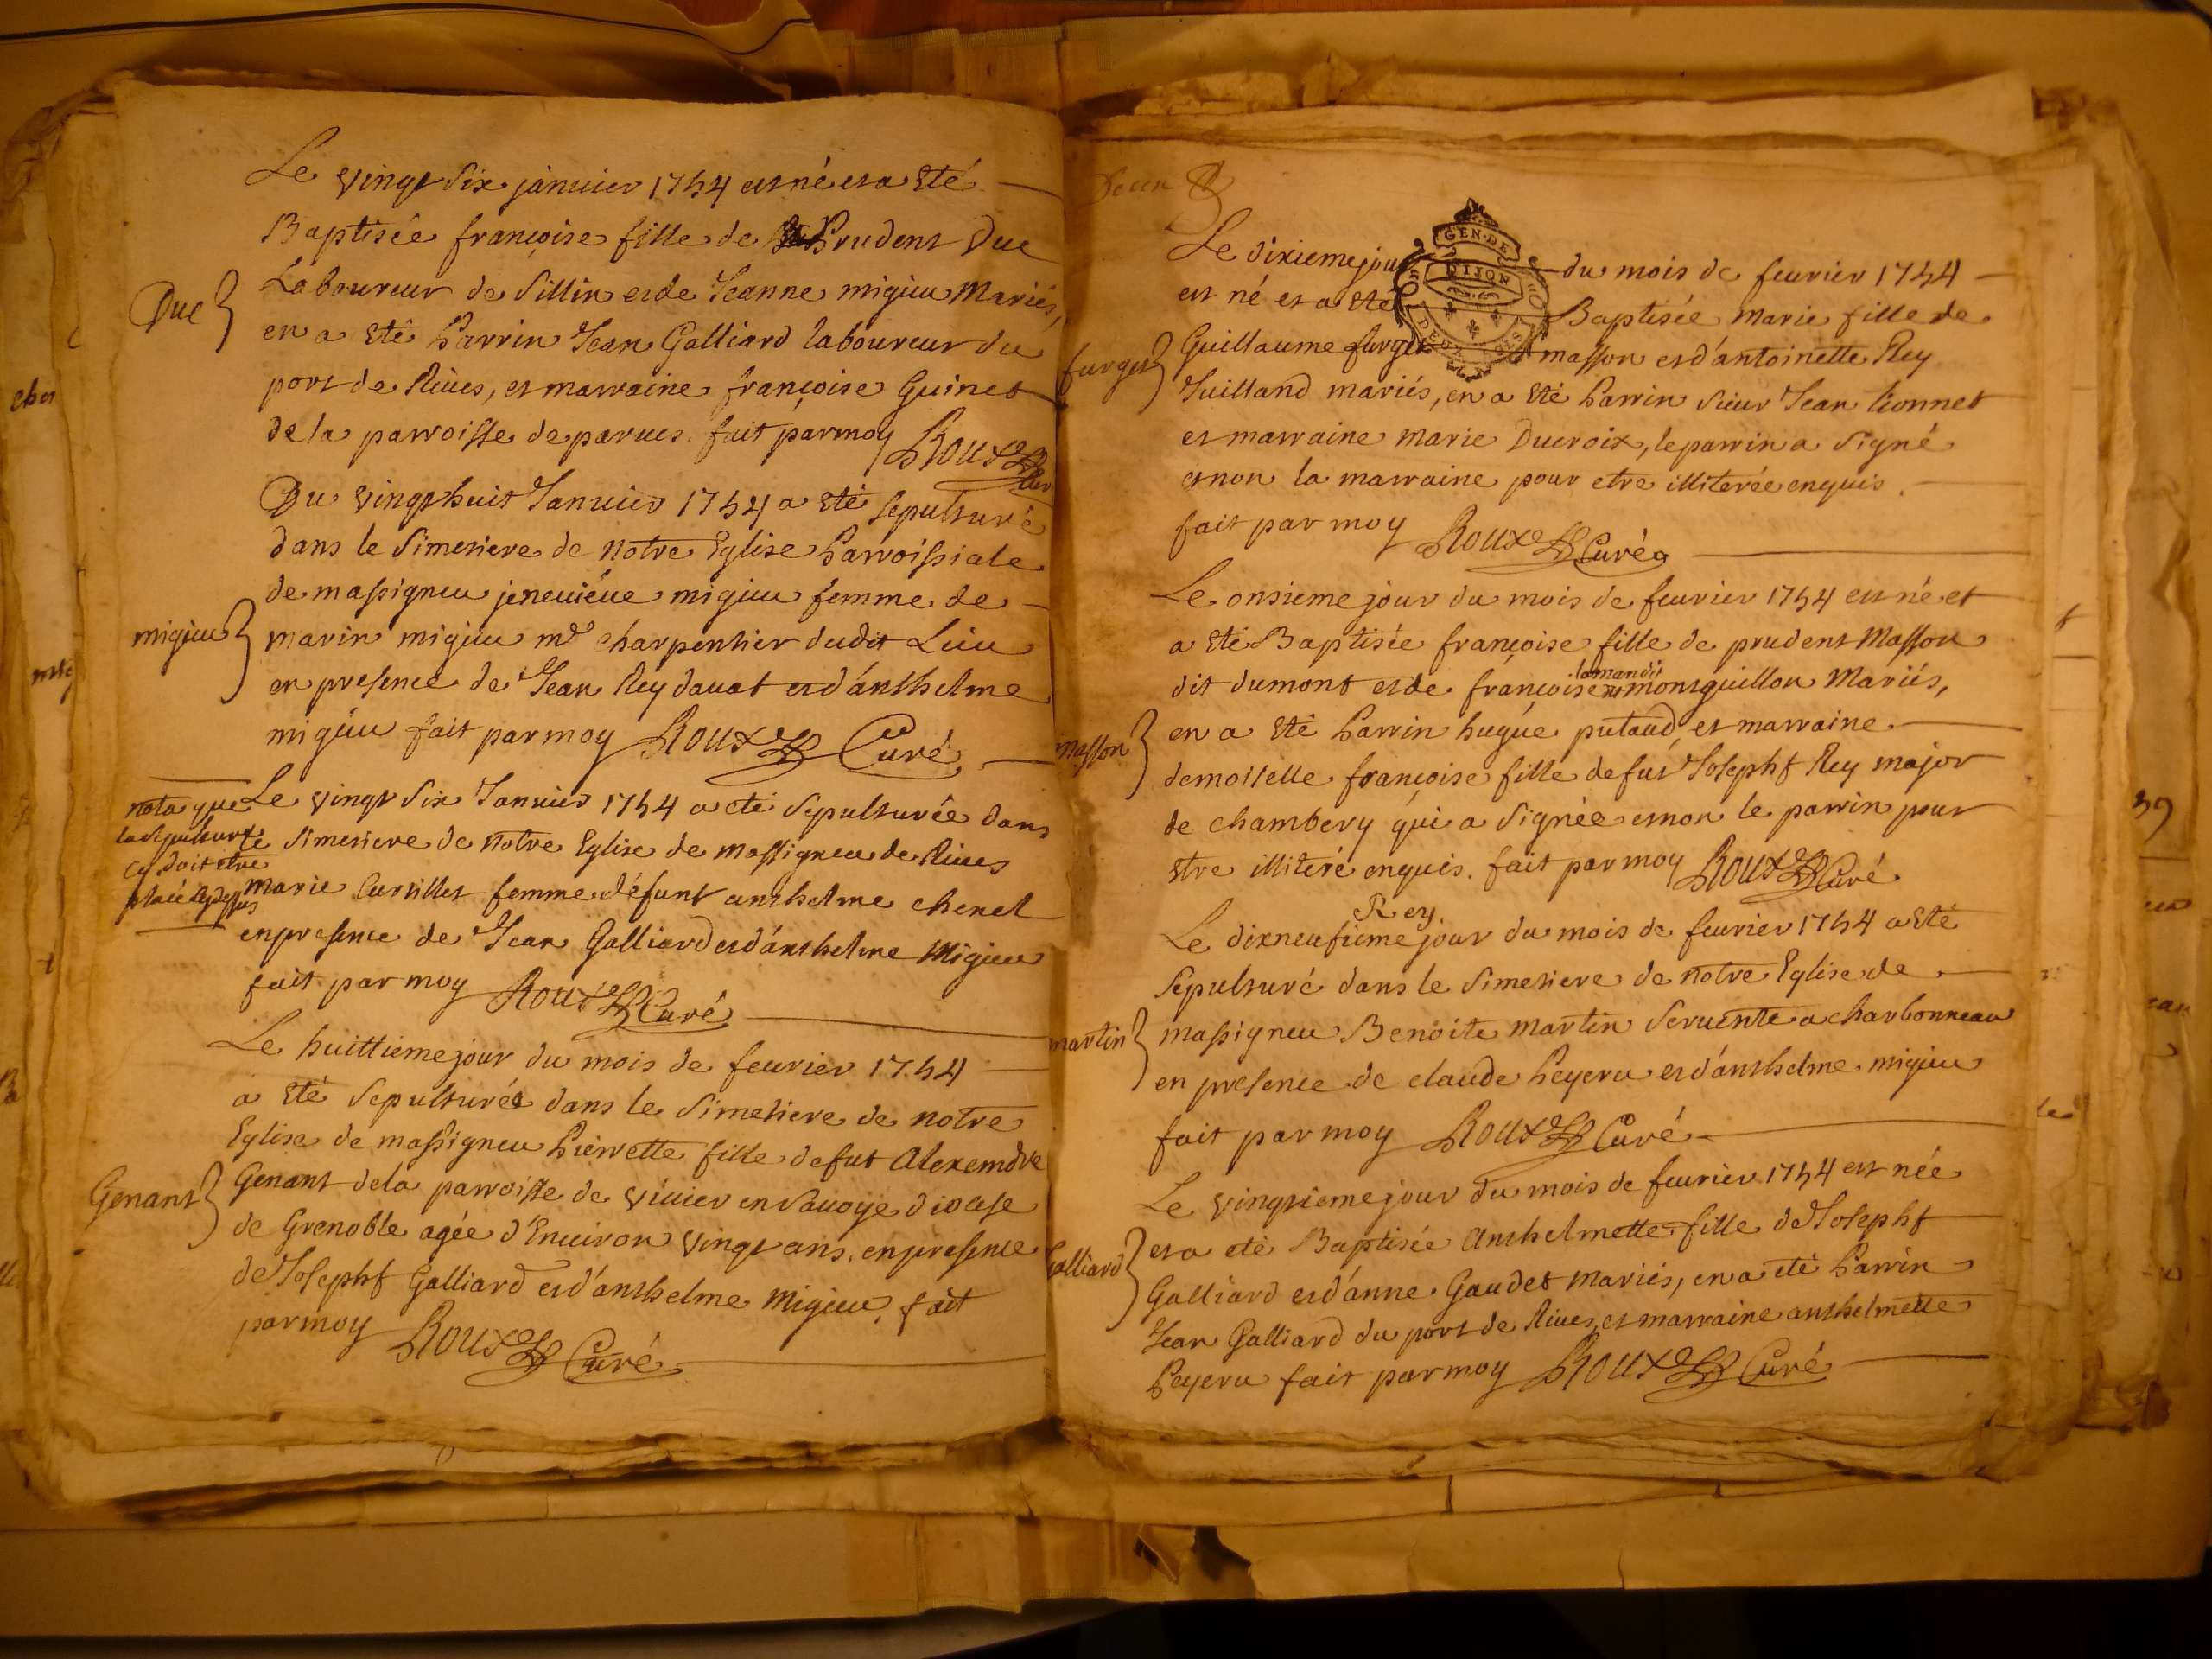 Le vingt six janvier 1754 est né et a été
Baptisée françoise fille de Prudent Duc
Laboureur de Sillin et de Jeanne migieu Mariés,
Duc
en a été Parrin Jean Galliard laboureur du
port de Rives, et marraine françoise Guinet
de la parroisse de parves. fait par moy Roux Curé
Du vingt huit Janvier 1754 a été sepulturé
dans le Simetiere de notre Eglise Parroissiale
de massigneu jenevieve migieu femme de
migieu
marin migieu md charpentier dudit Lieu
en presence de Jean Rey davat et d'anthelme
migieu fait par moy Roux Curé
nota que
la sepulture
cy doit etre
placé cy dessus
Le vingt Six Janvier 1754 a eté Sepulturée dans
le Simetiere de notre Eglise de massigneu de Rives
marie Cursillet femme défunt anthelme chenel
en presence de Jean Galliard et d'anthelme Migieu
fait par moy Roux Curé
Le huittieme jour du mois de fevrier 1754
a été Sepulturée dans le Simetiere de notre
Eglise de massigneu Pierrette fille de fut Alexemdre
Genant
Genant de la parroisse de Vivier en Savoye diocese
de Grenoble agée d'Environ vingt ans, en presence
de Josepht Galliard et d'anthelme Migieu, fait
par moy Roux Curé
Le dixieme jour du mois de fevrier 1754
GEN. DE
DIJON
DEUX
est né et a été Baptisée marie fille de
furget
Guillaume furget masson et d'antoinette Rey
Juilland mariés, en a été Parrin sieur Jean Lionnet
et marraine marie Ducroix, le parrin a Signé
et non la marraine pour etre illiterée enquis.
fait par moy Roux Curé
Le onsieme jour du mois de fevrier 1754 est né et
a été Baptisée françoise fille de prudent Masson
dit dumont et de françoise montguillon Mariés,
masson
en a été Parrin hugue putaud, et marraine
demoiselle françoise fille de fut Josepht Rey major
de chambery qui a Signée et non le parrin pour
etre illiteré enquis. fait par moy Roux Curé
Rey
Le dixneufieme jour du mois de fevrier 1754 a été
Sepulturé dans le Simetiere de notre Eglise de
martin
massigneu Benoite martin servente a charbonneau
en presence de claude Peyeru et d'anthelme migieu
fait par moy Roux Curé
Le vingtieme jour du mois de fevrier 1754 est née
et a eté Baptisée Anthelmette fille de Josepht
Galliard
Galliard et d'anne Gaudet mariés, en a été Parrin
Jean Galliard du port de Rives, et marraine anthelmette
Peyeru fait par moy Roux Curé